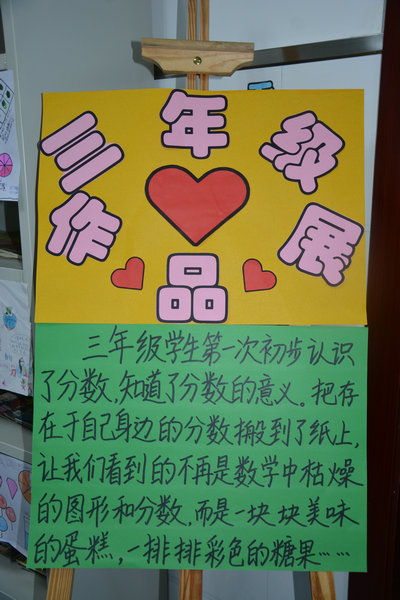 三年级
作品展
三年级学生第一次初步认识
了分数,知道了分数的意义。把存
在于自己身边的分数搬到了纸上,
让我们看到的不再是数学中枯燥
的图形和分数,而是一块块美味
的蛋糕,一排排彩色的糖果……